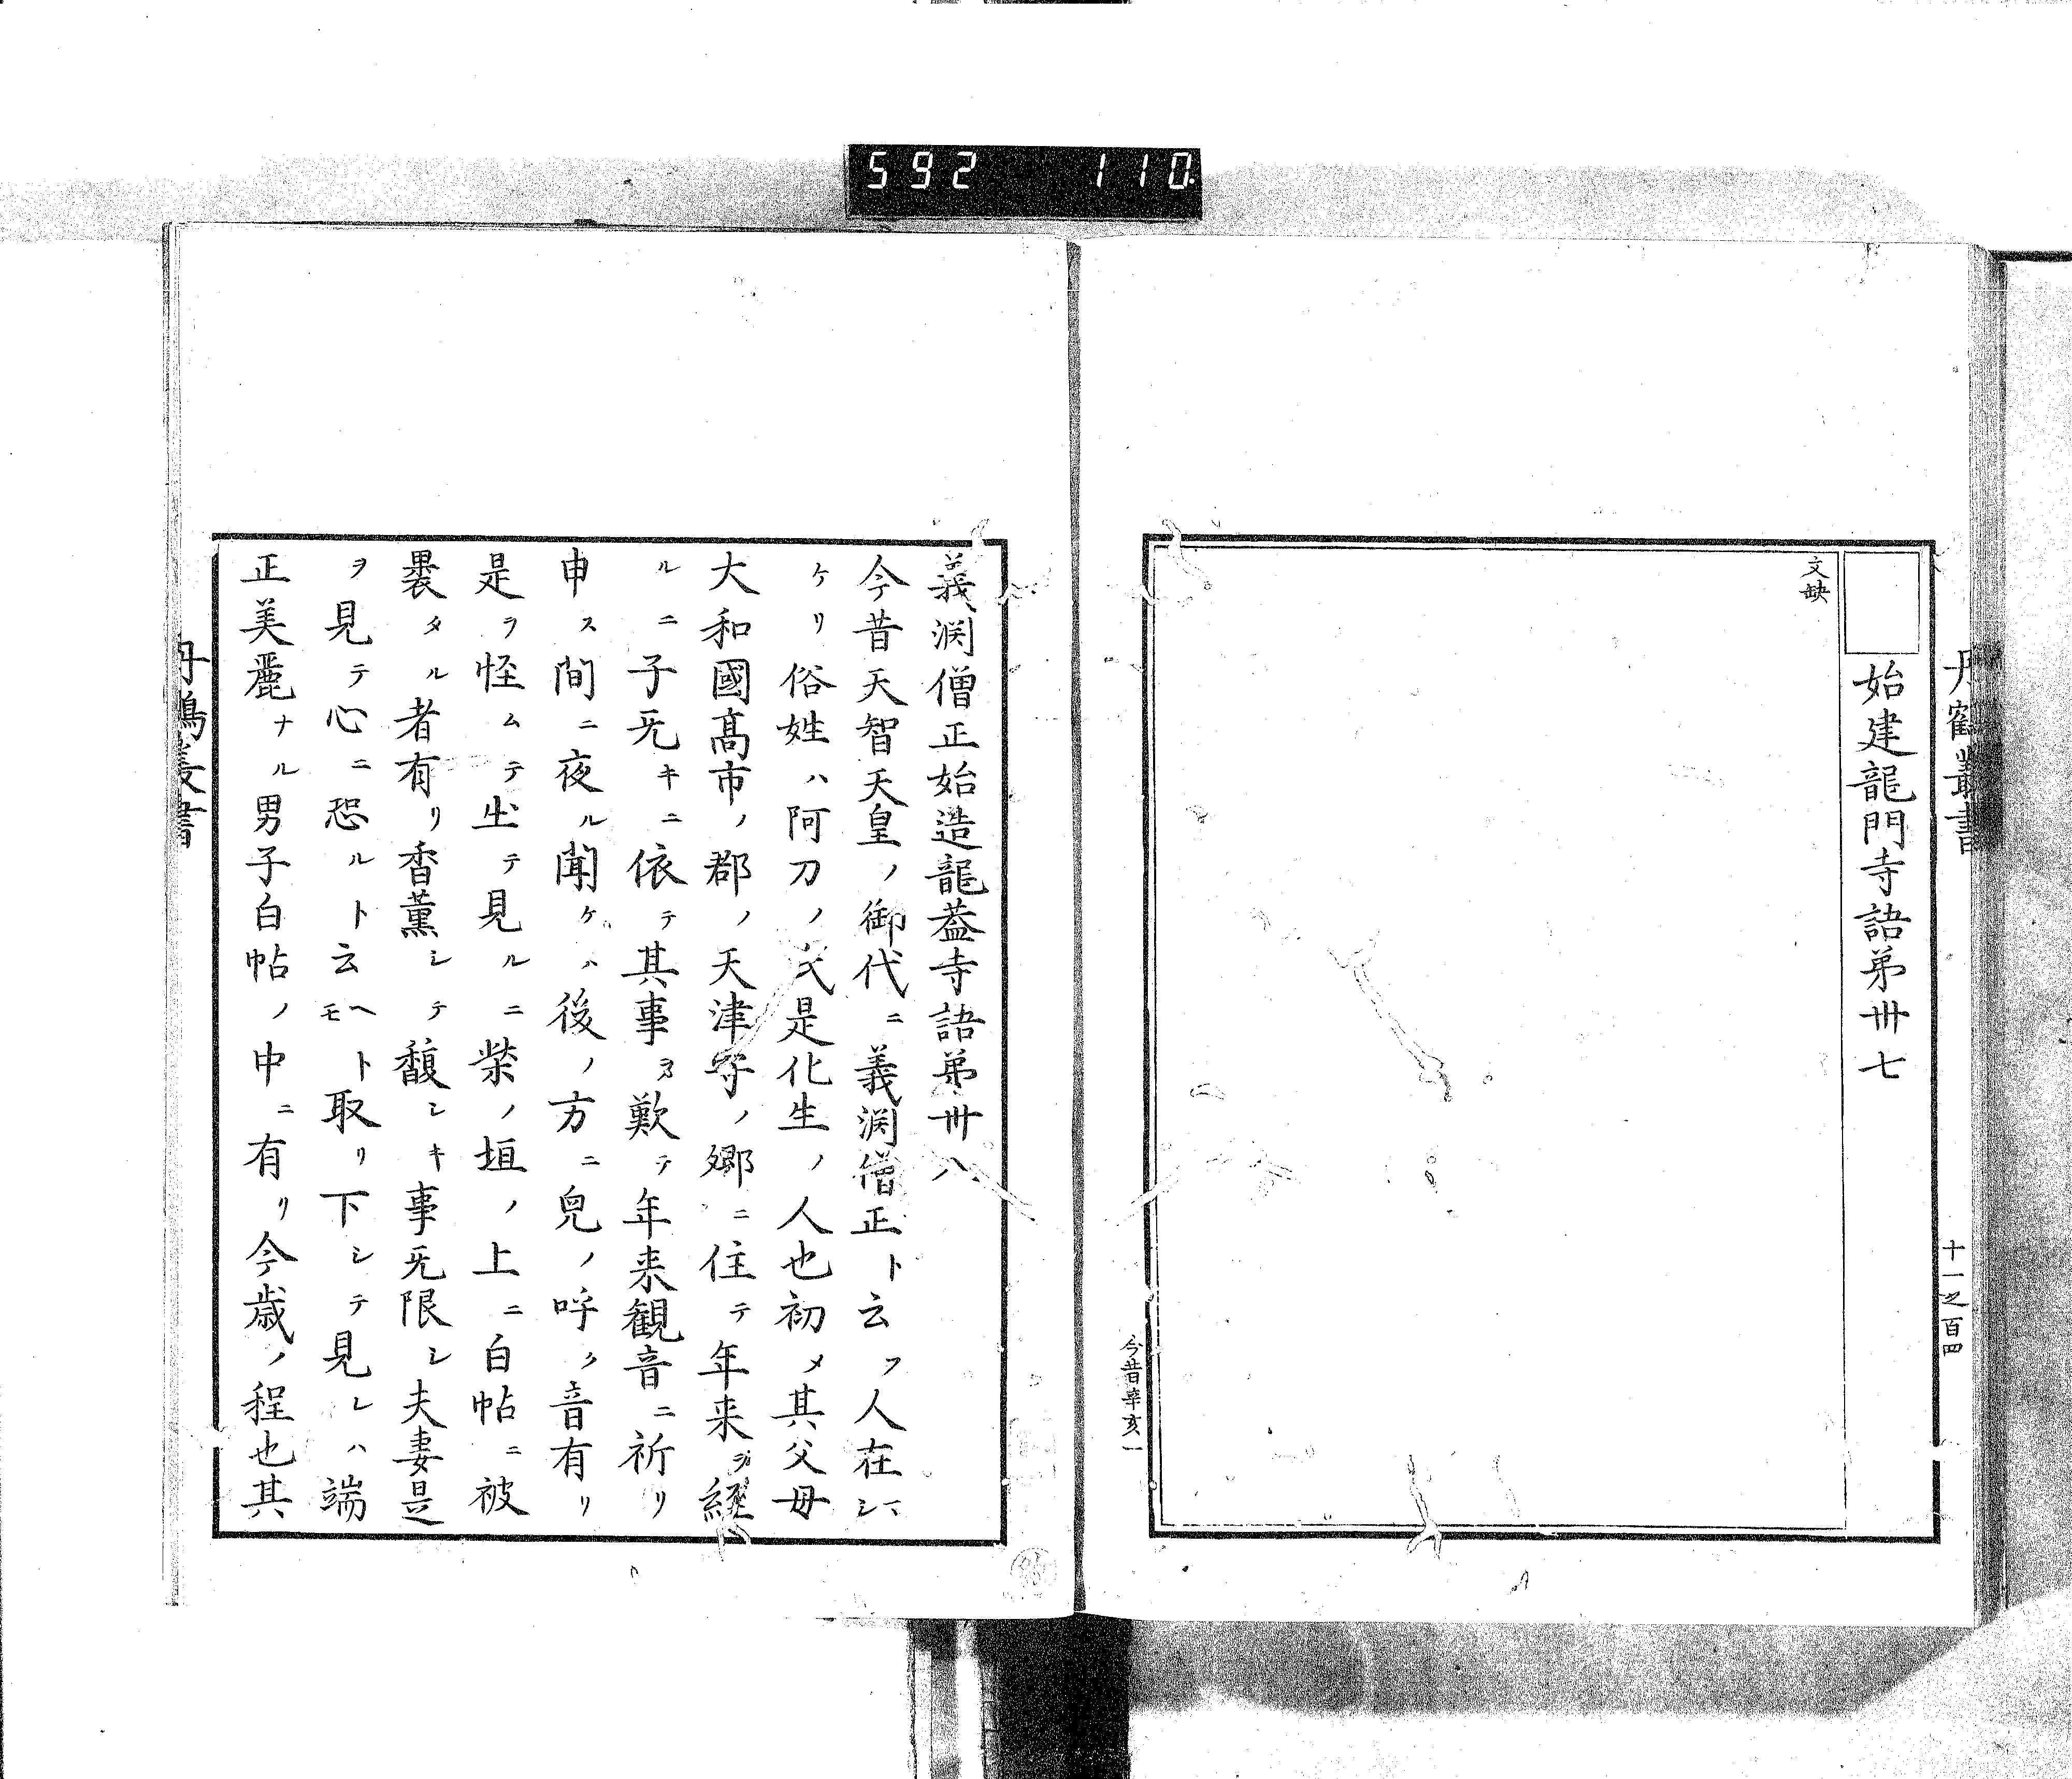 592 110.
丹鶴叢書
十一之百四
始建龍門寺語弟卅七
文缺
今昔辛亥一
義渕僧正始造龍蓋寺語弟卅八
今昔天智天皇ノ御代ニ義渕僧正ト云フ人在マシ
ケリ俗姓ハ阿刀ノ氏是化生ノ人也初メ其父母
大和國髙市ノ郡ノ天津守ノ郷ニ住テ年来ヲ經
ルニ子旡キニ依テ其事ヲ歎テ年来観音ニ祈リ
申ス間ニ夜ル聞ケハ後ノ方ニ兒ノ呼ク音有リ
是ヲ怪ムテ出テ見ルニ柴ノ垣ノ上ニ白帖ニ被
褁タル者有リ香薫シテ馥シキ事旡限シ夫妻是
ヲ見テ心ニ恐ルト云ヘトモ取リ下シテ見レハ端
正美麗ナル男子白帖ノ中ニ有リ今歳ノ程也其
丹鶴叢書